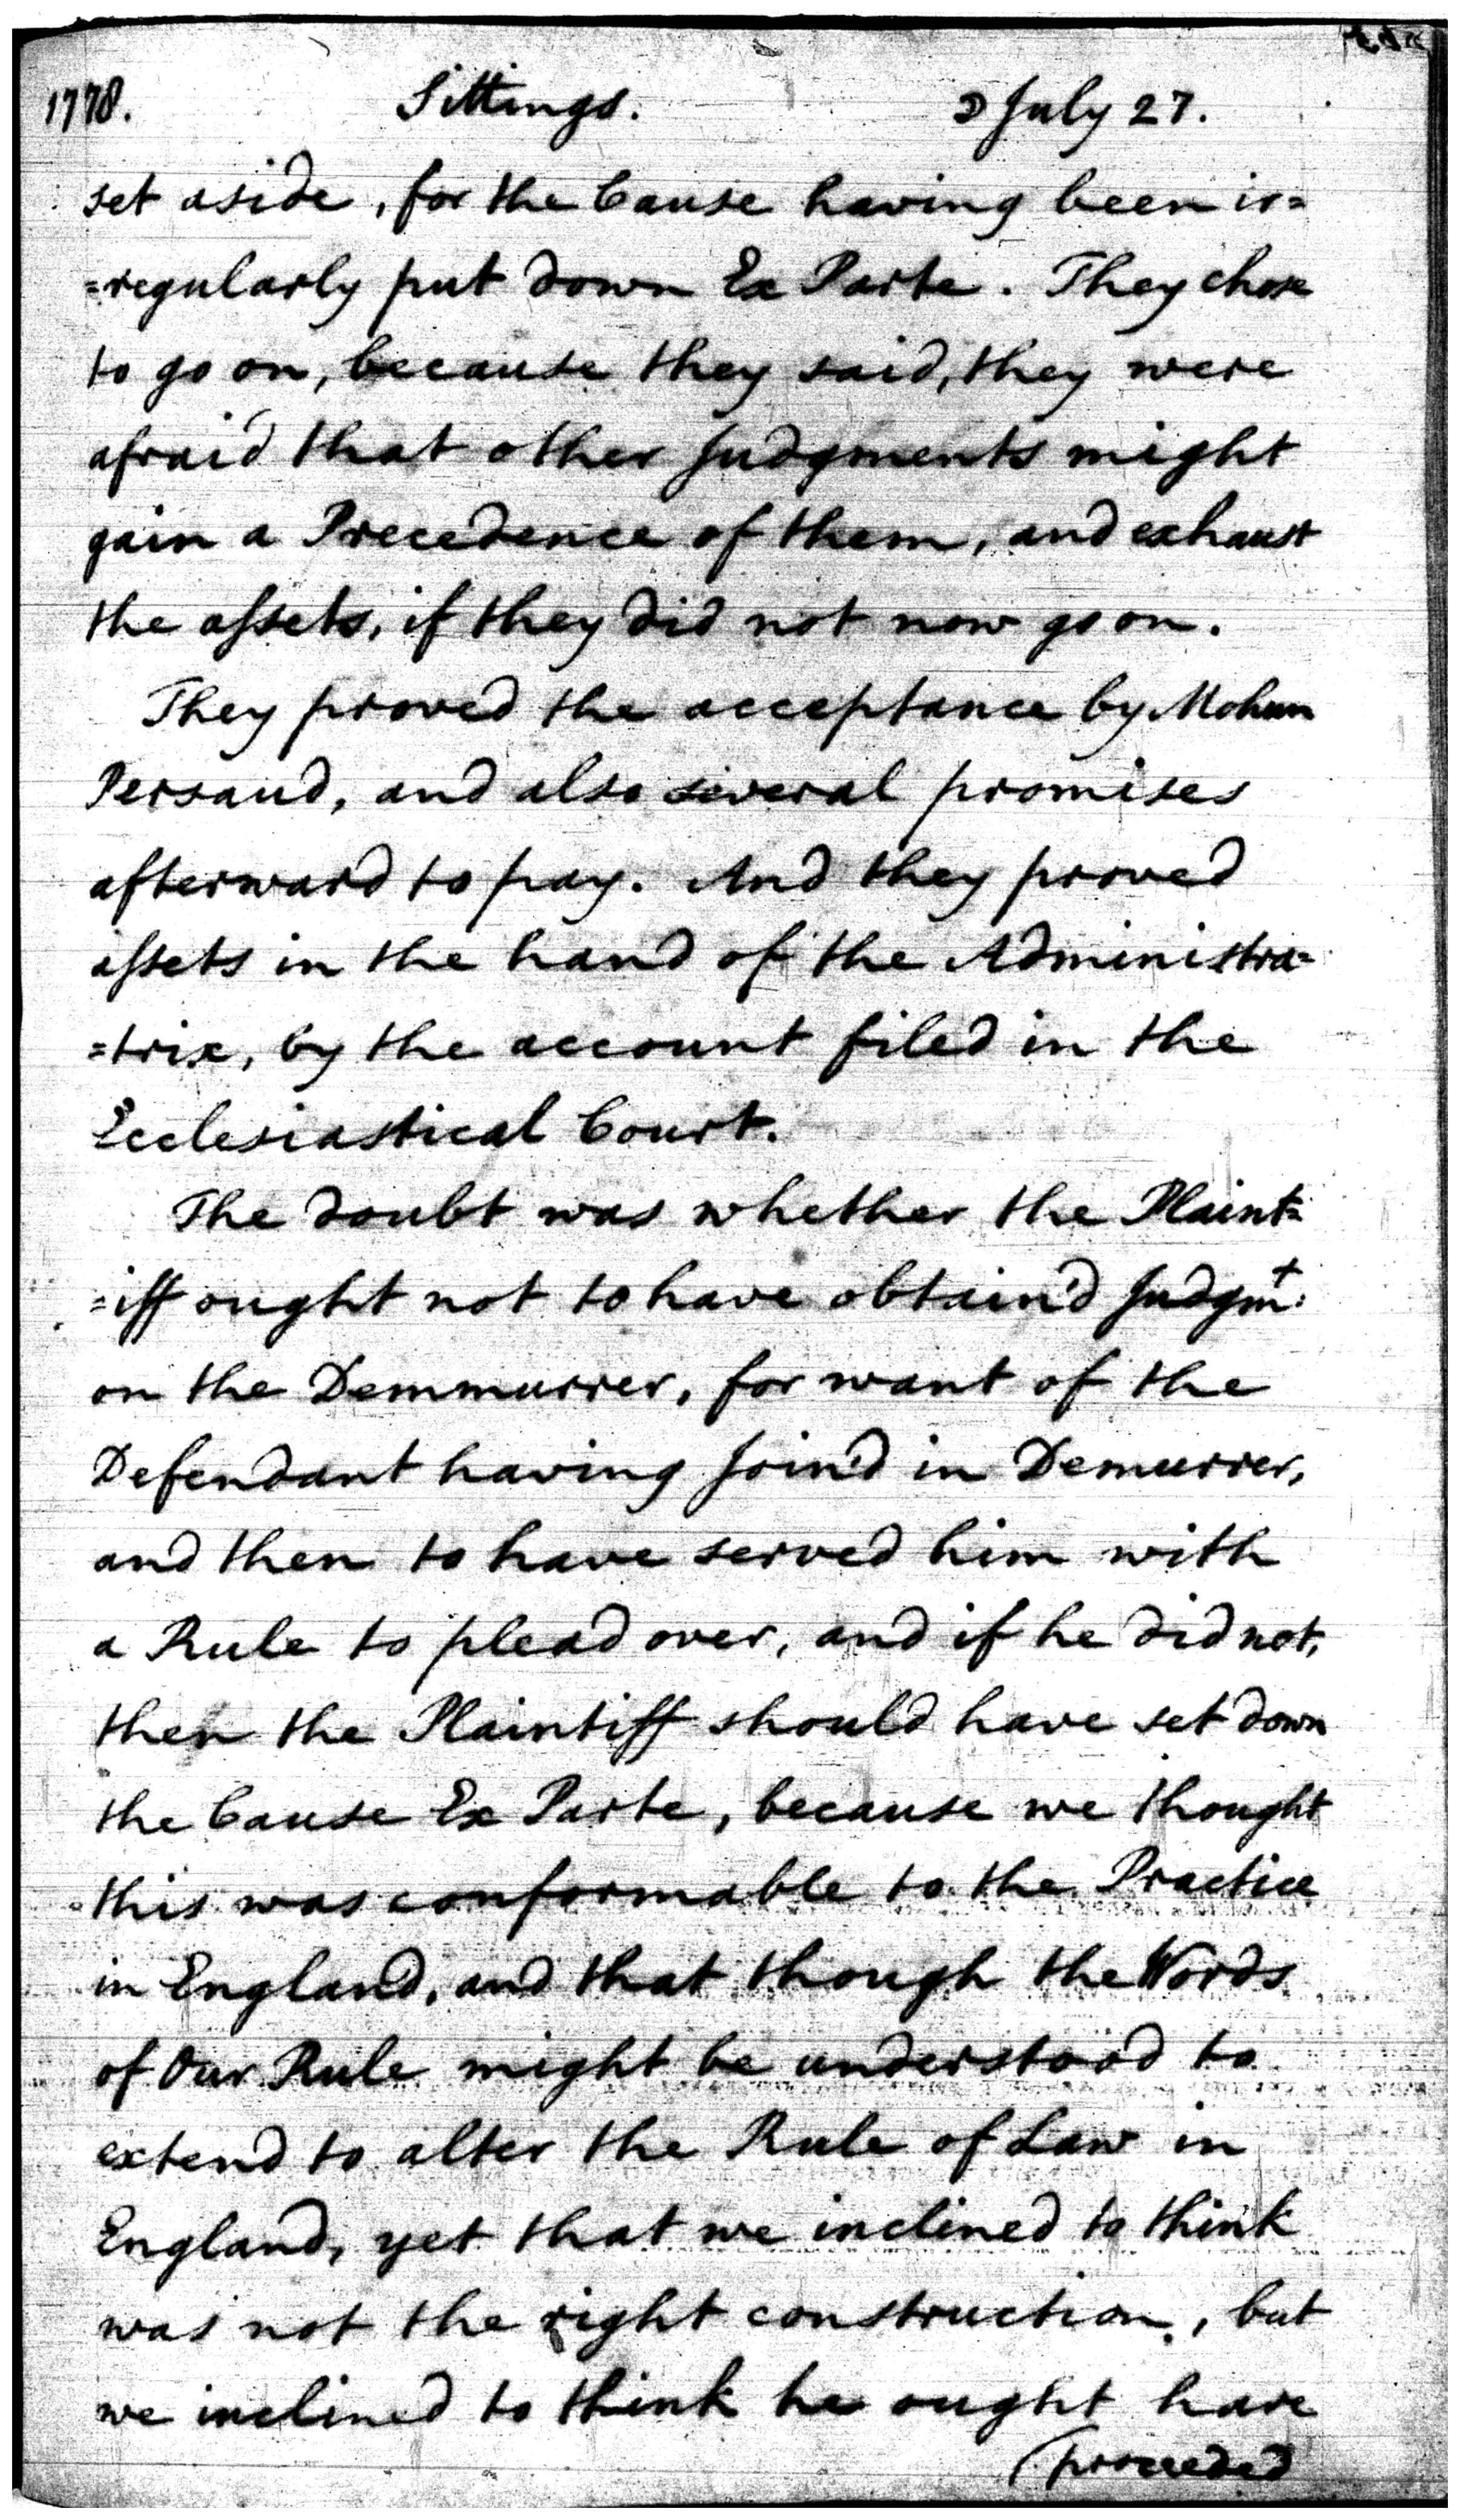 1778. Sittings. ☽ July 27.
set aside, for the Cause having been ir=
=regularly put down Ex Parte. They chose
to go on, because they said, they were
afraid that other Judgments might
gain a Precedence of them, and exhaust
the assets, if they did not now go on.
They proved the acceptance by Mohun
Persaud, and also several promises
afterward to pay. And they proved
assets in the hand of the Administra=
=trix, by the account filed in the
Ecclesiastical Court.
The doubt was whether the Plaint=
=iff ought not to have obtain'd Judgmt:
on the Demmurrer, for want of the
Defendant having join'd in Demurrer,
and then to have served him with
a Rule to plead over, and if he did not,
then the Plaintiff should have set down
the Cause Ex Parte, because we thought
this was conformable to the Practice
in England, and that though the Words
of Our Rule might be understood to
extend to alter the Rule of Law in
England, yet that we inclined to think
was not the right construction, but
we inclined to think he ought have
(proceeded